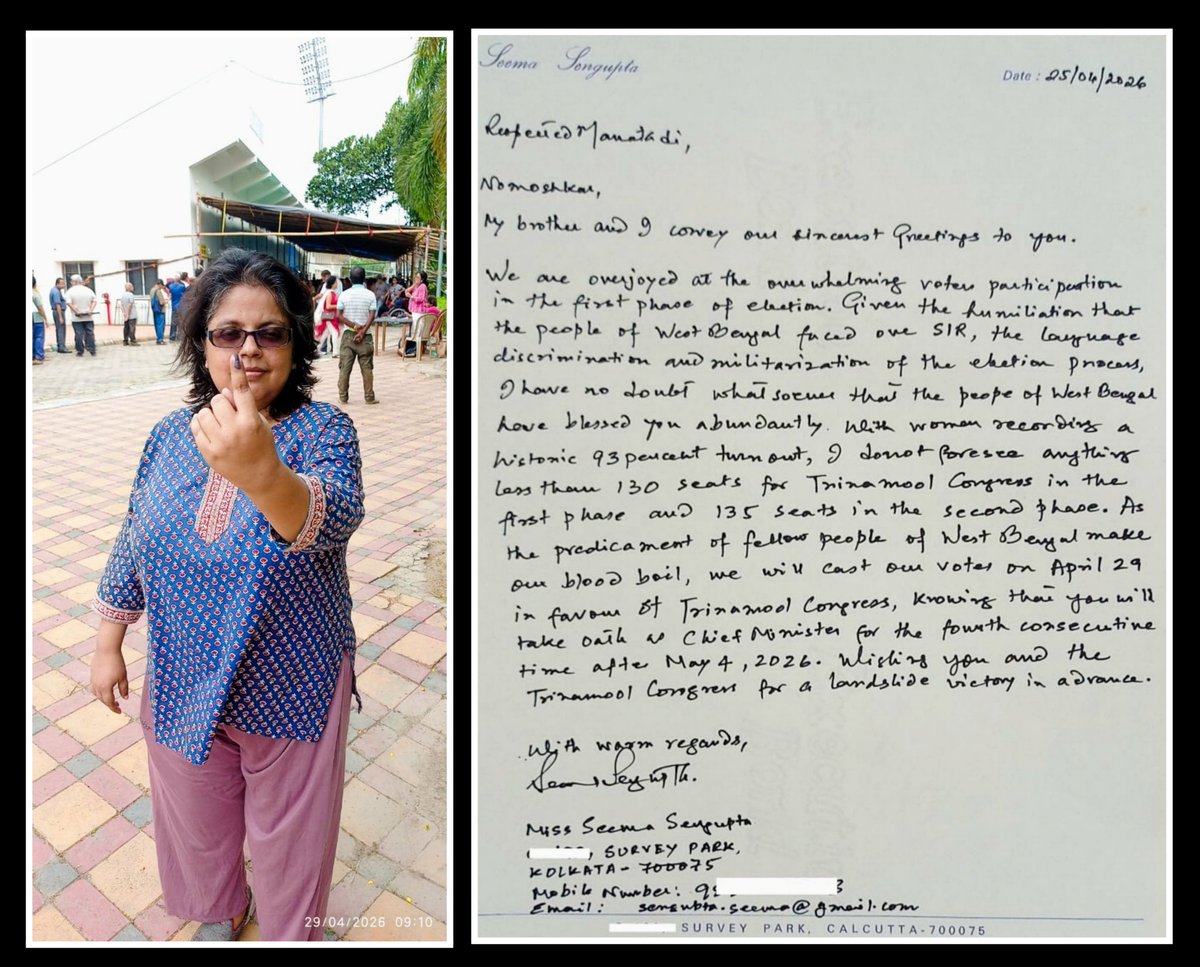 29/04/2026 09:10
Seema Sengupta
Date : 25/04/2026
Respected Mamata di,
Nomoshkar,
My brother and I convey our sincerest Greetings to you.
We are overjoyed at the overwhelming voters participation
in the first phase of election. Given the humiliation that
the people of West Bengal faced over SIR, the language
discrimination and militarization of the election process,
I have no doubt whatsoever that the people of West Bengal
have blessed you abundantly. With women recording a
historic 93 percent turnout, I donot foresee anything
less than 130 seats for Trinamool Congress in the
first phase and 135 seats in the second phase. As
the predicament of fellow people of West Bengal make
our blood boil, we will cast our votes on April 29
in favour of Trinamool Congress, knowing that you will
take oath as Chief Minister for the fourth consecutive
time after May 4, 2026. Wishing you and the
Trinamool Congress for a landslide victory in advance.
With warm regards,
Miss Seema Sengupta
, SURVEY PARK,
KOLKATA- 700075
Mobile Number: 9 3
Email: sengupta.seema@gmail.com
SURVEY PARK, CALCUTTA-700075